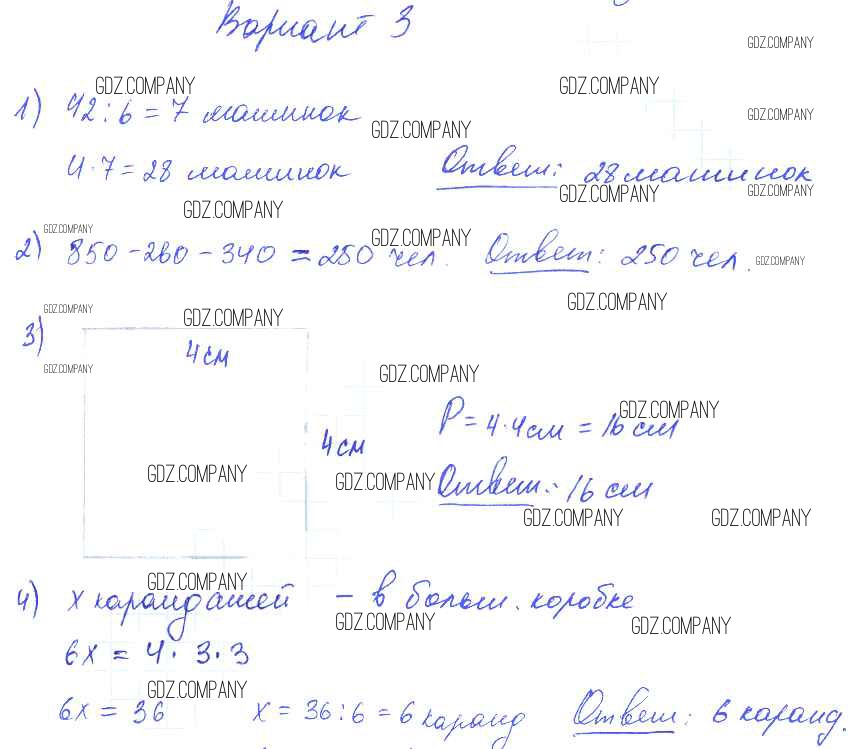 Вариант 3
GDZ.COMPANY
GDZ.COMPANY GDZ.COMPANY
1) 42 : 6 = 7 машинок GDZ.COMPANY GDZ.COMPANY
4 · 7 = 28 машинок Ответ: 28 машинок
GDZ.COMPANY GDZ.COMPANY GDZ.COMPANY
GDZ.COMPANY GDZ.COMPANY
2) 850 - 260 - 340 = 250 чел. Ответ: 250 чел. GDZ.COMPANY
GDZ.COMPANY GDZ.COMPANY GDZ.COMPANY
3)
4 см
GDZ.COMPANY GDZ.COMPANY
4 см P = 4 · 4 см = 16 см GDZ.COMPANY
GDZ.COMPANY GDZ.COMPANY Ответ: 16 см
GDZ.COMPANY GDZ.COMPANY
GDZ.COMPANY
4) x карандашей – в больш. коробке
GDZ.COMPANY GDZ.COMPANY
6x = 4 · 3 · 3
GDZ.COMPANY
6x = 36 x = 36 : 6 = 6 каранд Ответ: 6 каранд.